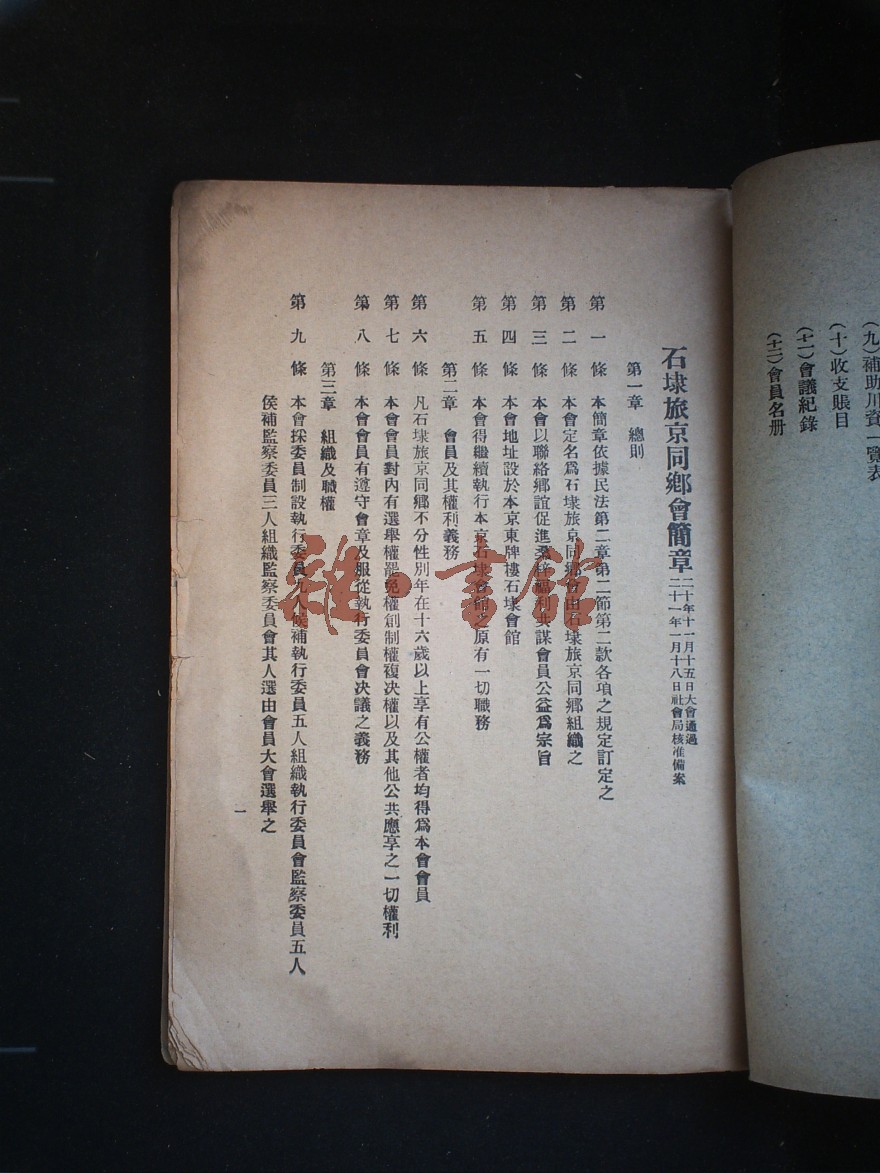 (九)補助川資一覽表
(十)收支賬目
(十一)會議紀錄
(十二)會員名册
石埭旅京同鄉會簡章
二十年十一月十五日大會通過
二十一年一月十八日社會局核准備案
第一章 總則
第一條 本簡章依據民法第二章第二節第二款各項之規定訂定之
第二條 本會定名爲石埭旅京同鄉會由石埭旅京同鄉組織之
第三條 本會以聯絡鄉誼促進桑梓福利共謀會員公益爲宗旨
第四條 本會地址設於本京東牌樓石埭會館
第五條 本會得繼續執行本京石埭會館之原有一切職務
第二章 會員及其權利義務
第六條 凡石埭旅京同鄉不分性別年在十六歲以上享有公權者均得爲本會會員
第七條 本會會員對內有選舉權罷免權創制權複决權以及其他公共應享之一切權利
第八條 本會會員有遵守會章及服從執行委員會决議之義務
第三章 組織及職權
第九條 本會採委員制設執行委員九人候補執行委員五人組織執行委員會監察委員五人
侯補監察委員三人組織監察委員會其人選由會員大會選舉之
一